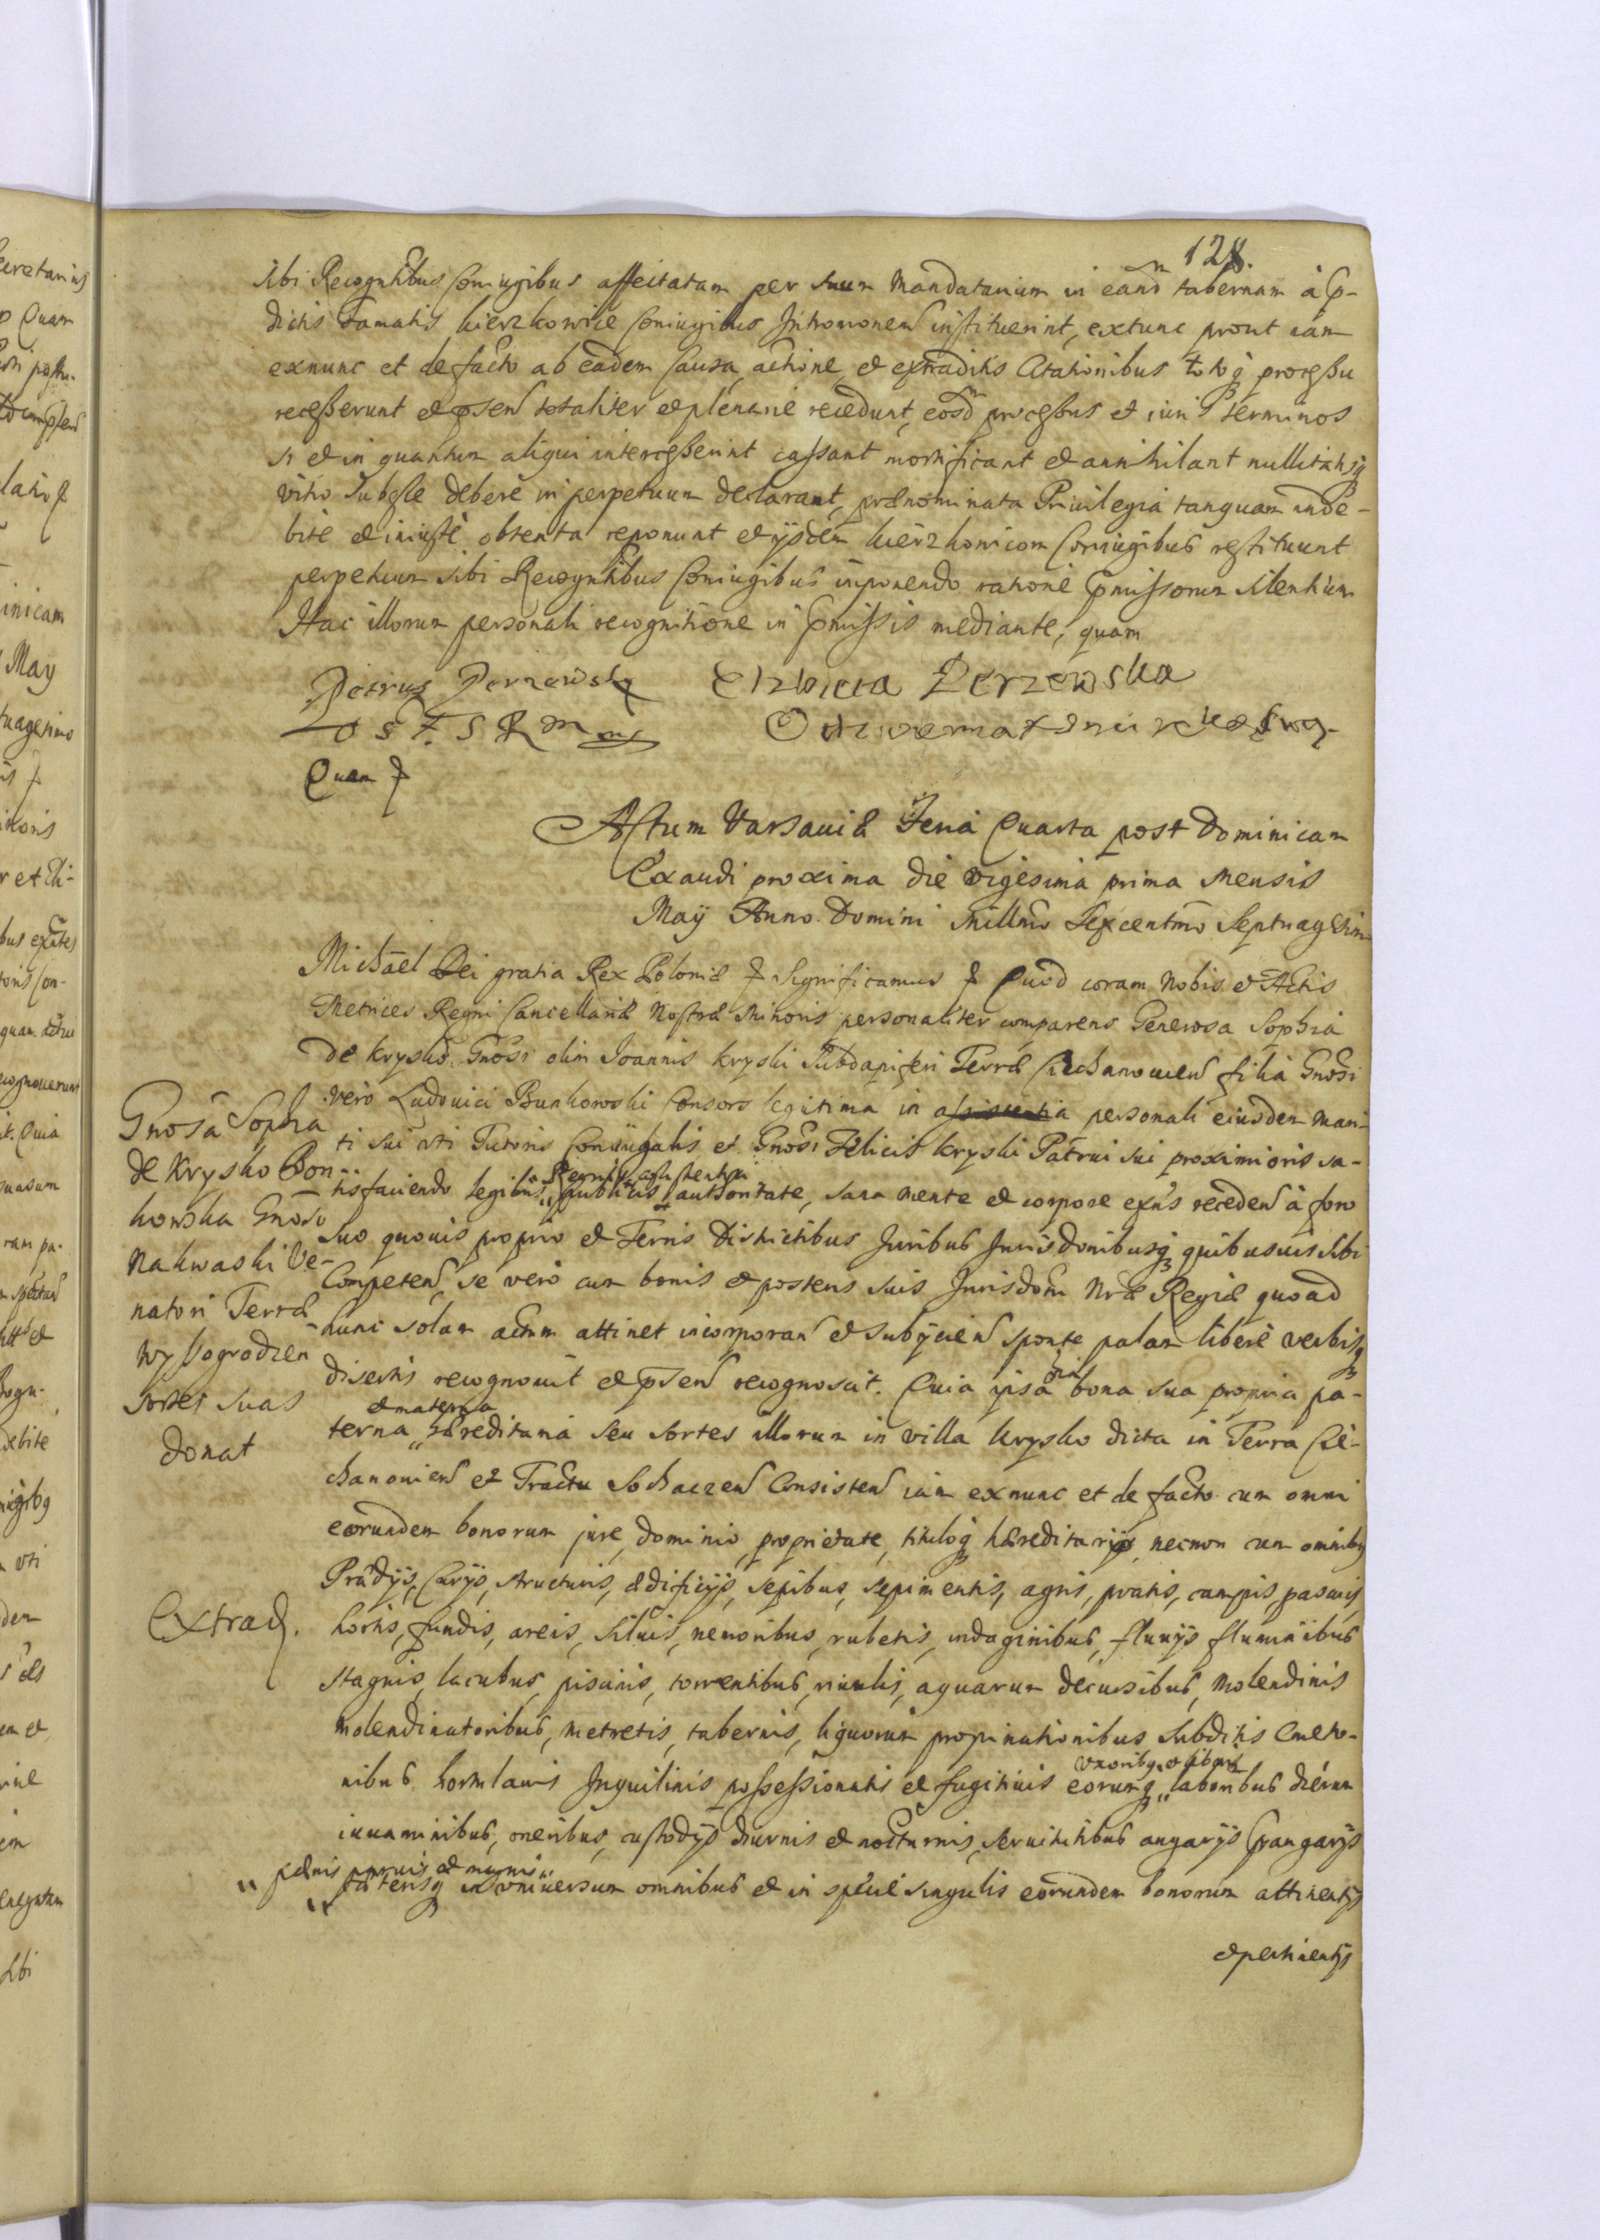 128.
sibi Recogntibus Coniugibus affectatam per suum Mandatarium in eand tabernam à p-
dictis Famatis Kierzkowice Coniugibus Intromonem instituerint, extunc prout iam
exnunc et de facto ab eadem Causa, actione, et extraditis Citationibus totoq processu
recesserunt et psen totaliter et plenarie recedunt, eosd processus et iuris terminos
si et in quantum aliqui intercesserint cassant mortificant et annihilant nullitatisq
vitio subesse debere in perpetuum declarant, prænominata Priuilegia tanquam inde-
bite et iniuste obtenta reponunt et ijsdem Kierzkowicom Coniugibus restituunt
perpetuum sibi Recogntibus Coniugibus imponendo ratione pmissorum silentium
Hac illorum personali recognitione in pmissis mediante, quam
Petrus Perzewsky Elzbieta Perzewska
Quam
Actum Varsauiæ Feria Quarta post Dominicam
Exaudi proxima die vigesima prima Mensis
Maij Anno Domini Millmo Sexcentmo Septuagesimo
Michael Dei gratia Rex Poloniæ Significamus Quod coram Nobis et Actis
Metrices Regni Cancellariæ Nostræ Minoris personaliter comparens Generosa Sophia
de Krysko Gnosi olim Joannis Kryski Subdapiferi Terræ Ciechanouien filia Gnosi
vero Ludouici Bunkowski Consors legitima in assistentia personali eiusdem Mari-
ti sui uti Tutoris Coniugalis et Gnosi Felicis Kryski Patrui sui proximioris sa-
tisfaciendo legibus publicis authoritate, sana mente et corpore exns receden à foro
suo quouis proprio et Terris Districtibus Juribus Jurisdonibusq quibusuis sibi
Competen, se vero cum bonis et posteris suis Jurisdoni Nræ Regiæ quoad
hunc solum actum attinet incorporan et subijcien sponte palam libere verbisq
disertis recognouit et psen recognoscit. Quia ipsa oia bona sua propria pa-
et materna
terna hæreditaria seu sortes illorum in villa Krysko dicta in Terra Cie-
chanouien et Tractu Sochaczen Consisten iam exnunc et de facto cum omni
eorundem bonorum jure, dominio, proprietate, tituloq hæreditarijs, necnon cum omnibus
Prædijs, Curijs, structuris, ædificijs, sepibus, sepimentis, agris, pratis, campis, pascuis,
hortis, fundis, areis, siluis, nemoribus, rubetis, indaginibus, fluuijs fluminibus
stagnis, lacubus, piscinis, torrentibus, riuulis, aquarum decursibus, molendinis
molendinatoribus, metretis, tabernis, liquorum propinationibus Subditis Cmeto-
nibus hortulanis Inquilinis possessionatis et fugitiuis eorumq laboribus dierum
uxoribus et liberis
iuuaminibus, oneribus, custodijs diurnis et nocturnis, seruitutibus angarijs pangarijs
cæterisq in vniuersum omnibus et in specie singulis eorundem bonorum attinentijs
et pertinentijs
Gnosa Sophia
de Krysko Bon
kowska Gnoso
Nakwaski Ve-
natori Terræ
Wyssogrodzen
sortes suas
donat
Extrad.